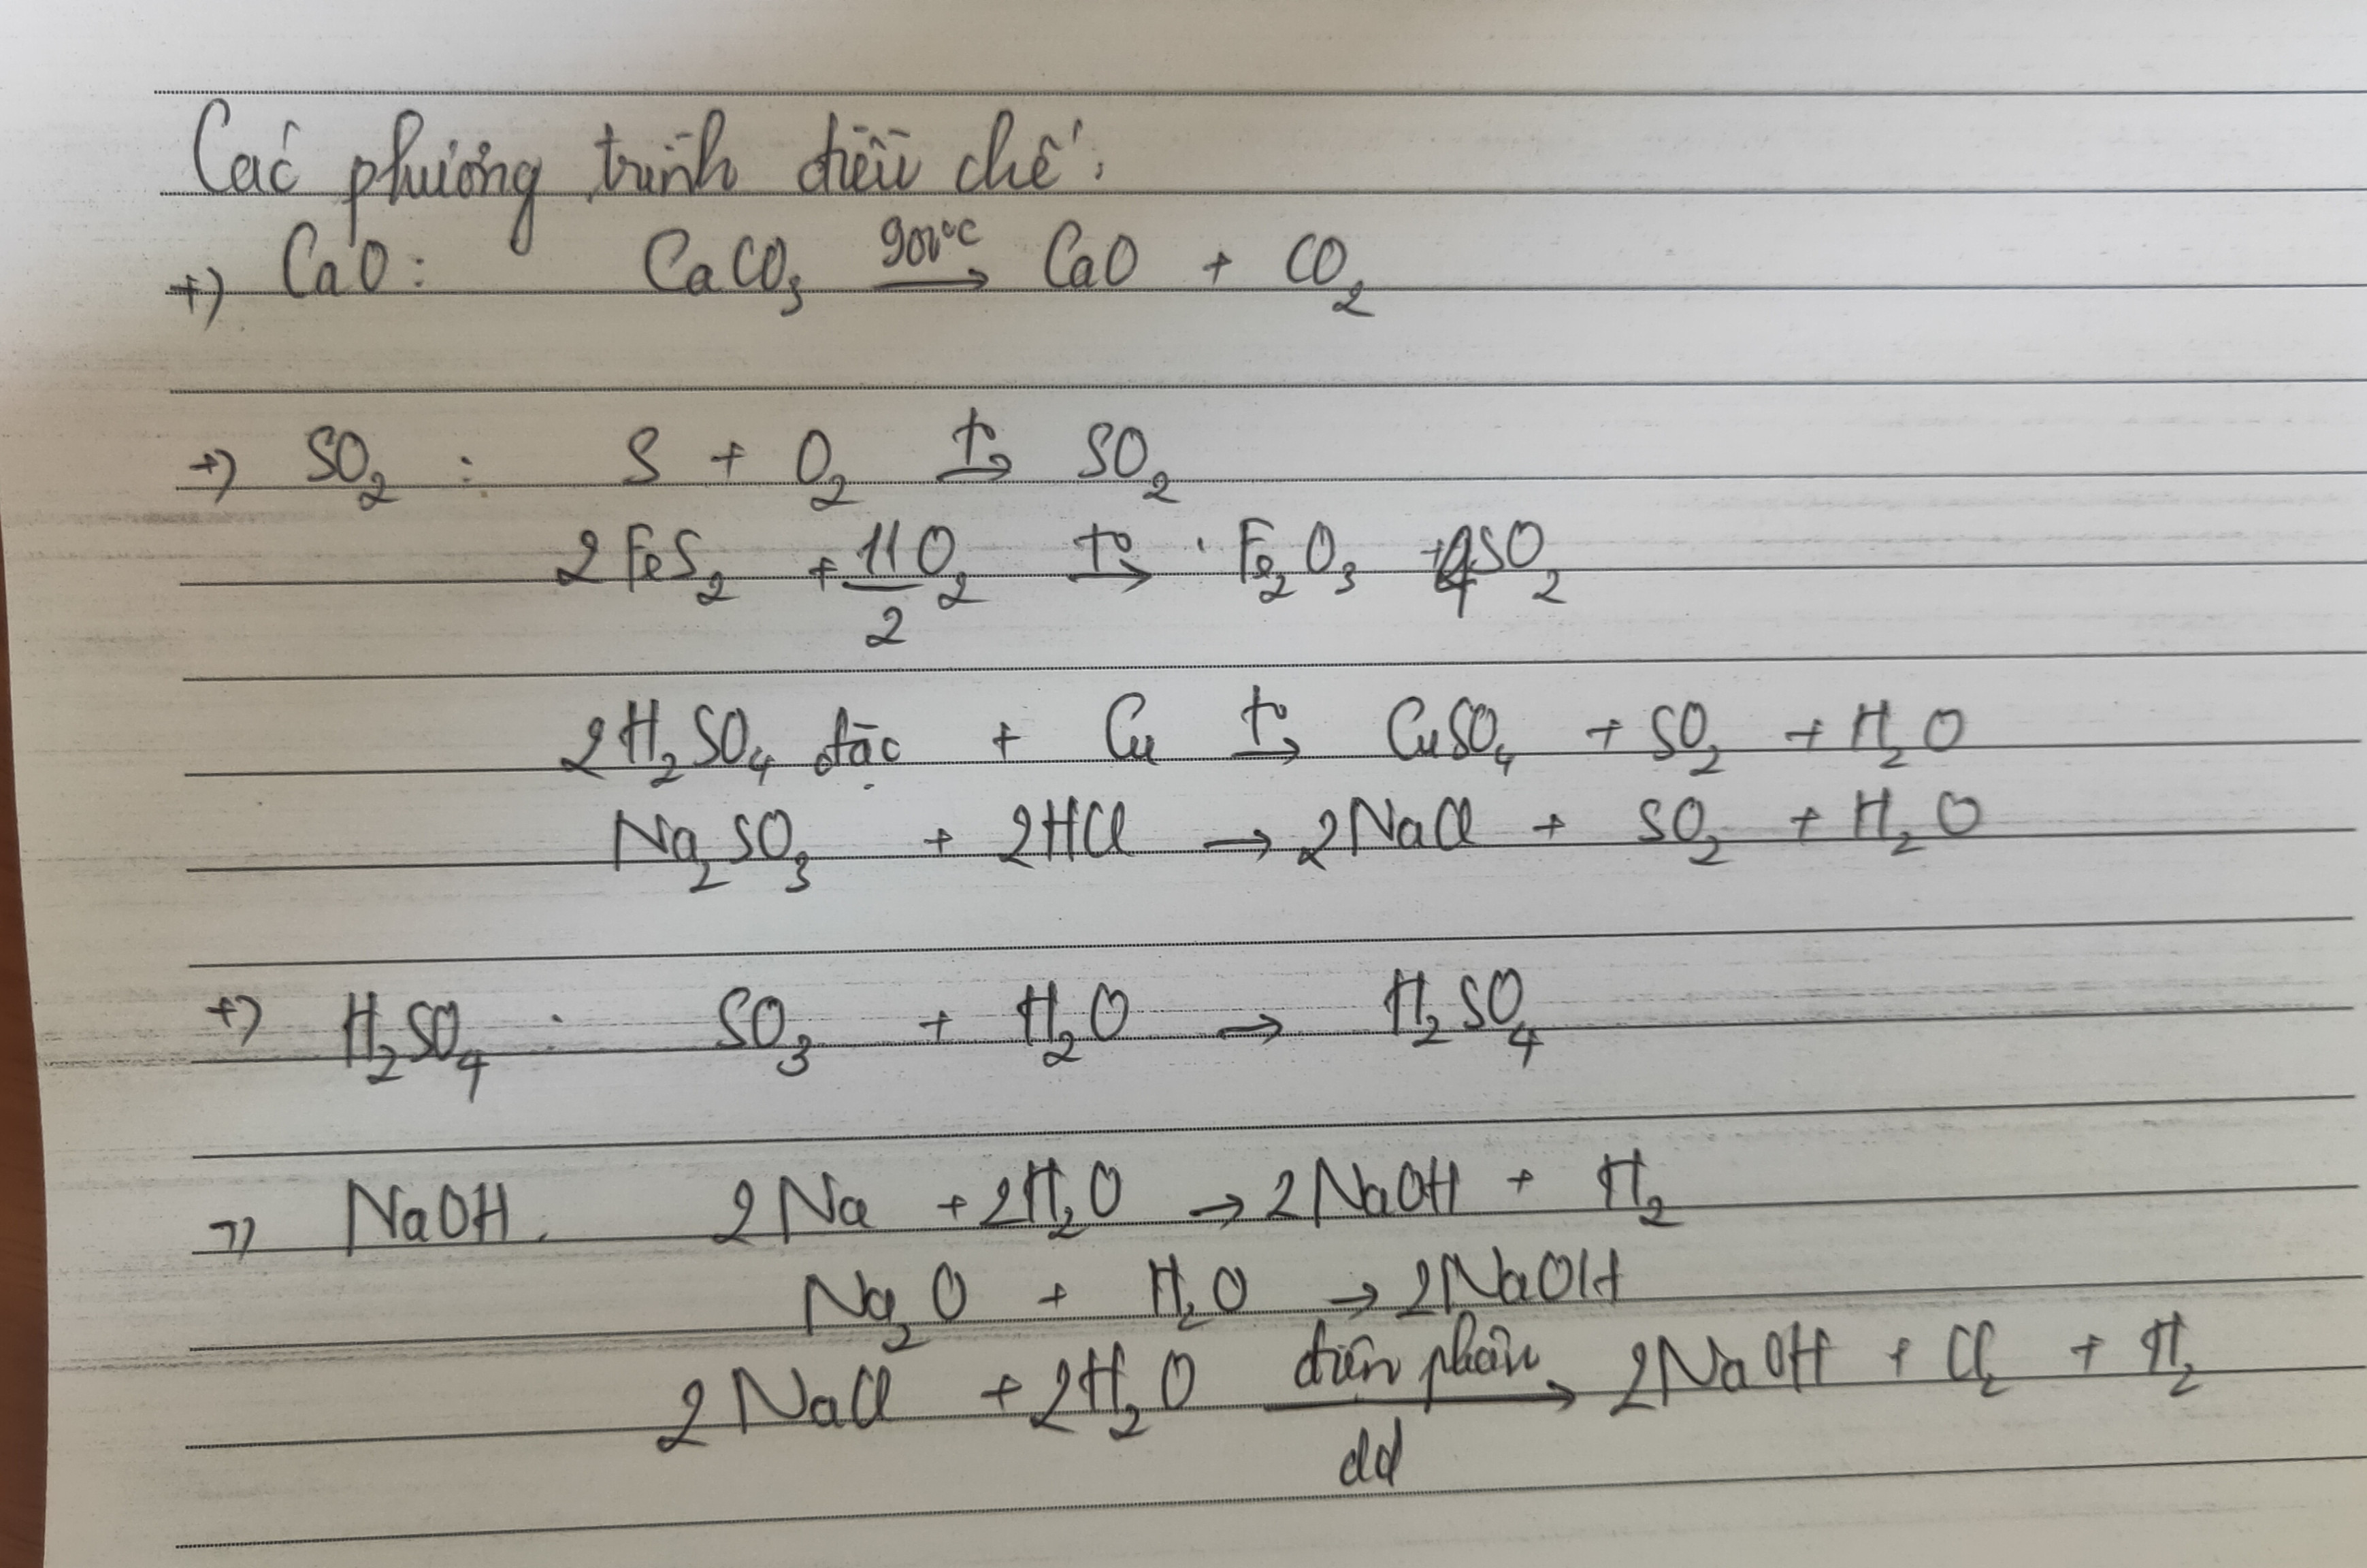 Các phương trình điều chế:
+) CaO: CaCO₃ 900°C → CaO + CO₂
+) SO₂ : S + O₂ t° → SO₂
2FeS₂ + 11/2 O₂ t° → Fe₂O₃ + 4SO₂
2H₂SO₄ đặc + Cu t° → CuSO₄ + SO₂ + H₂O
Na₂SO₃ + 2HCl → 2NaCl + SO₂ + H₂O
+) H₂SO₄ : SO₃ + H₂O → H₂SO₄
+) NaOH. 2Na + 2H₂O → 2NaOH + H₂
Na₂O + H₂O → 2NaOH
2NaCl + 2H₂O điện phân → 2NaOH + Cl₂ + H₂
dd